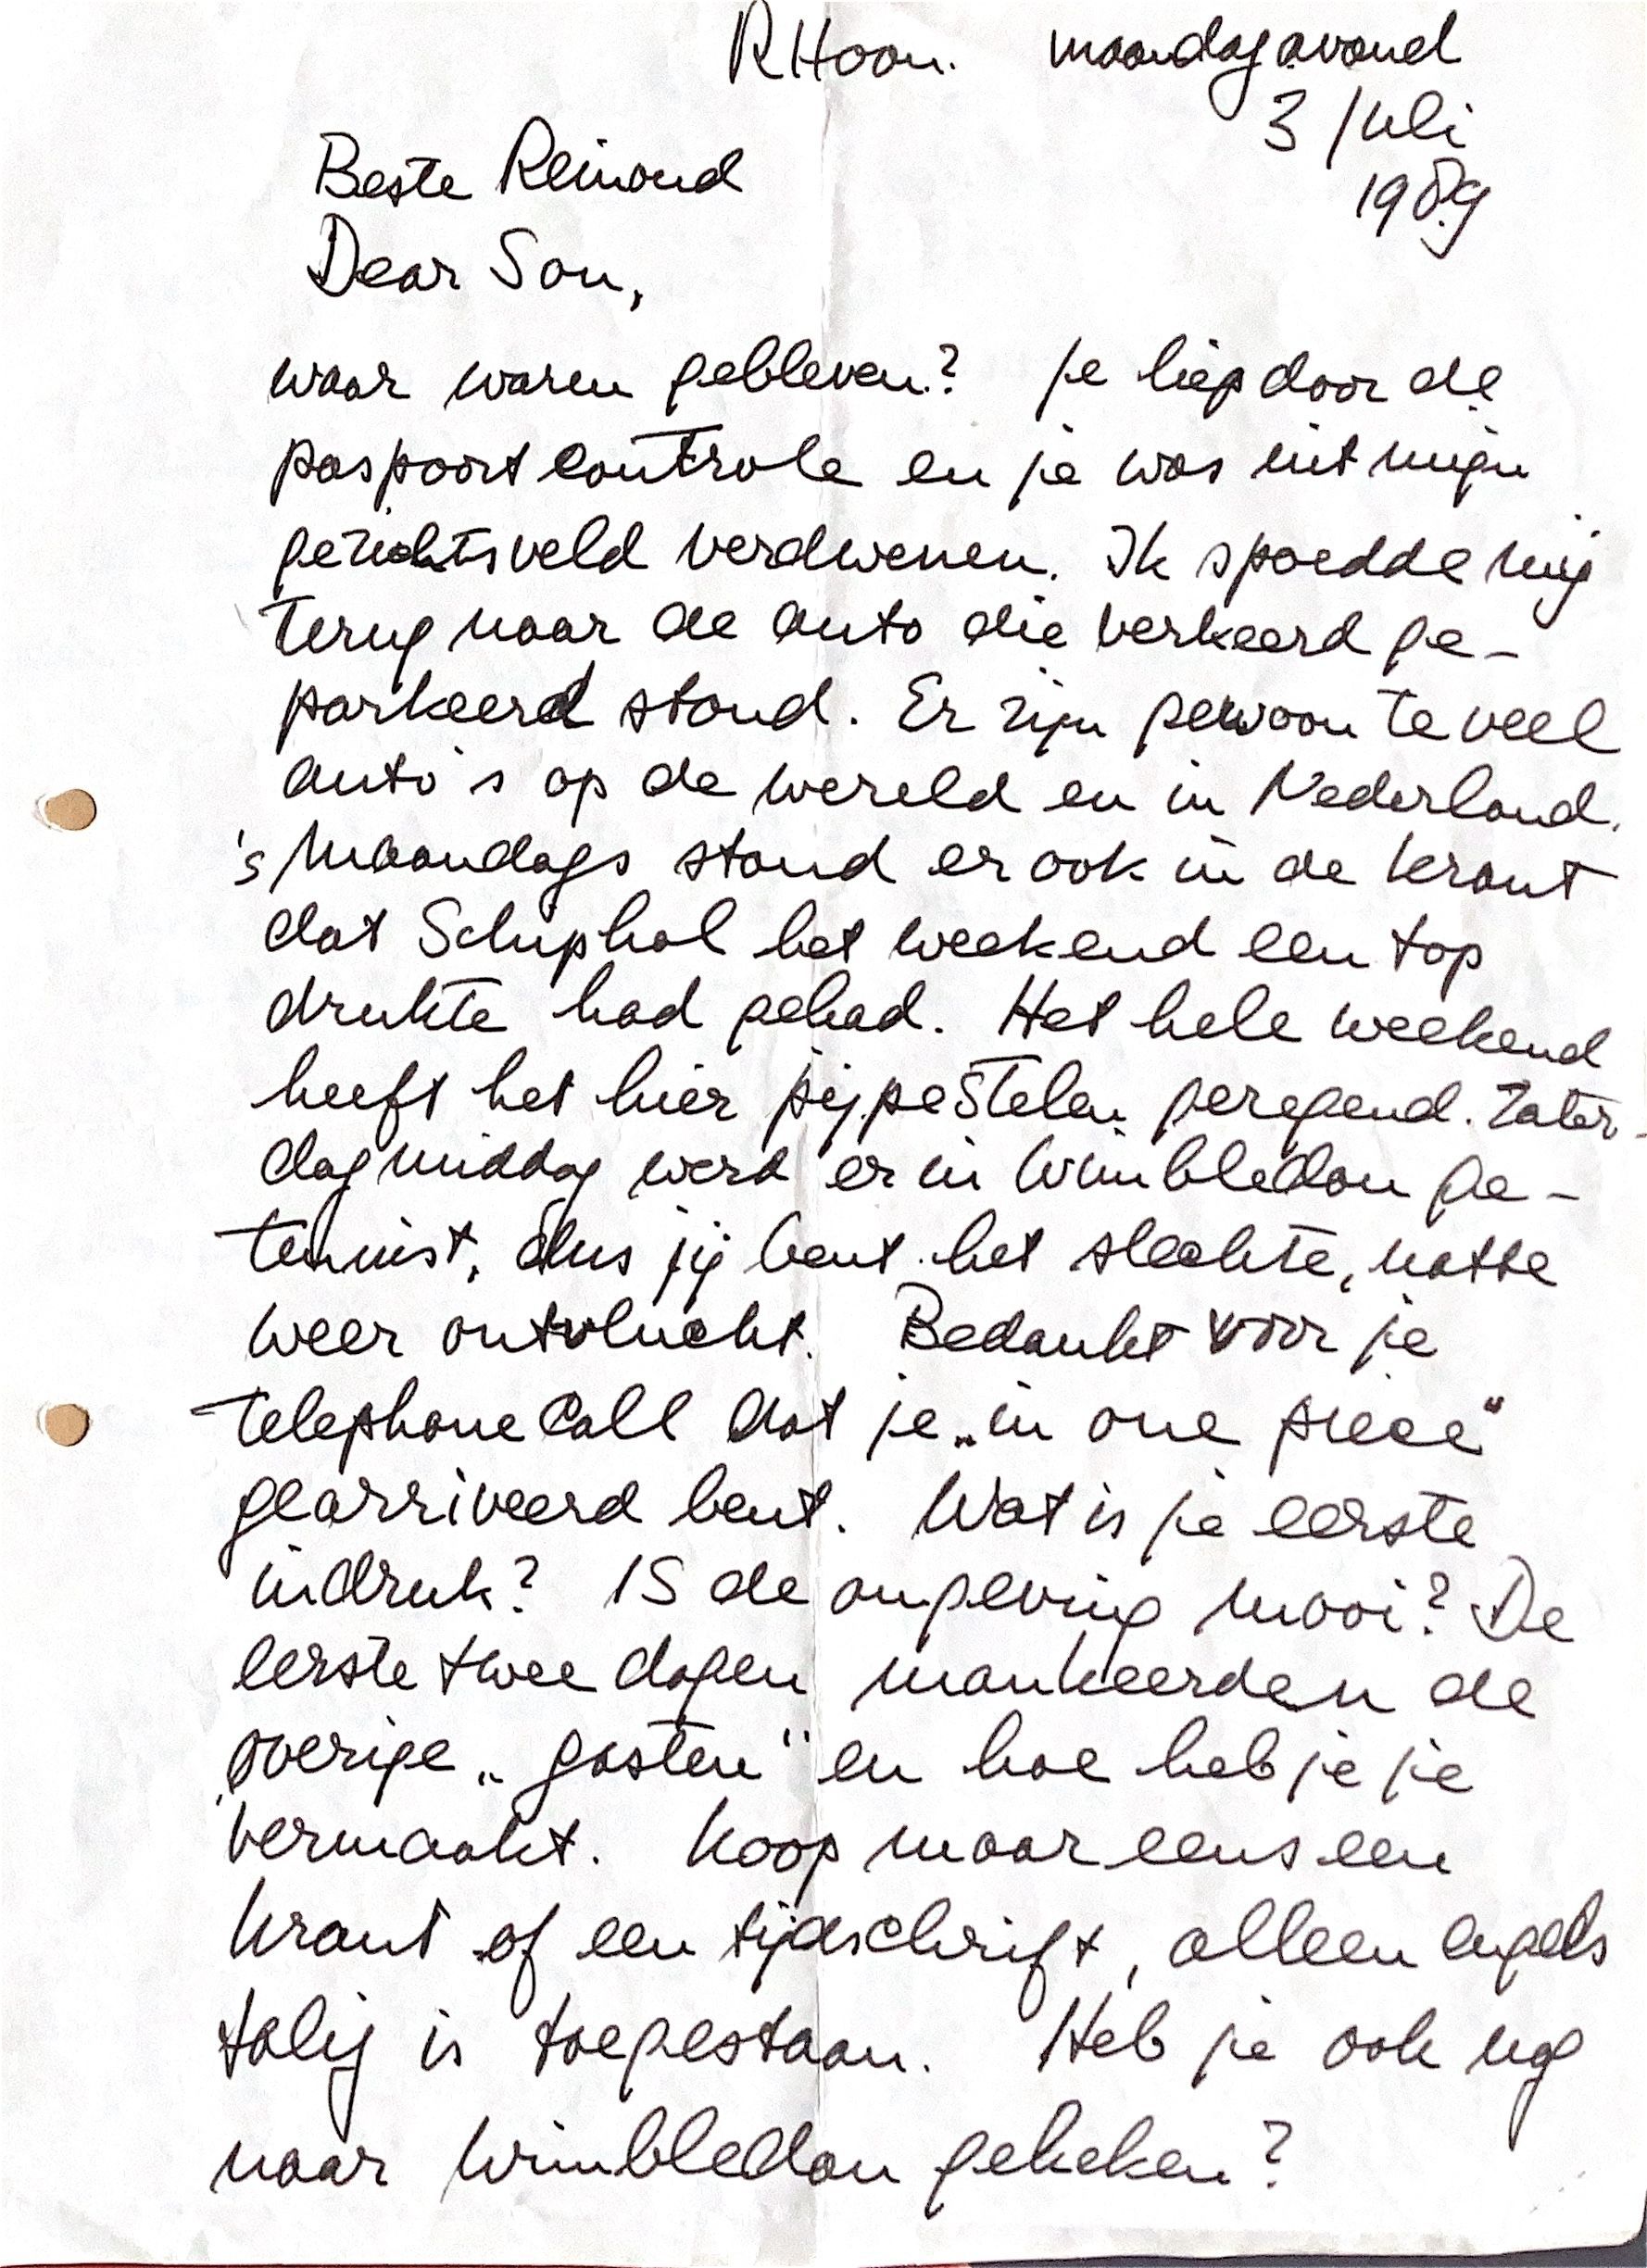 RHoon. maandagavond
3 Juli
1989
Beste Reinoud
Dear Son,
waar waren gebleven? je liep door de
paspoort controle en je was uit mijn
gezichtsveld verdwenen. Ik spoedde mij
terug naar de auto die verkeerd ge-
parkeerd stond. Er zijn gewoon te veel
auto's op de wereld en in Nederland.
's Maandags stond er ook in de krant
dat Schiphol het weekend een top
drukte had gehad. Het hele weekend
heeft het hier pijpestelen geregend. Zater-
dagmiddag werd er in Wimbledon ge-
tennist, dus jij bent het slechte, natte
weer ontvlucht. Bedankt voor je
telephone Call dat je „in one piece"
gearriveerd bent. Wat is je eerste
indruk? IS de omgeving mooi? De
eerste twee dagen mankeerden de
overige „gasten" en hoe heb je je
vermaakt. Koop maar eens een
krant of een tijdschrift, alleen engels
talig is toegestaan. Heb je ook nog
naar Wimbledon gekeken?